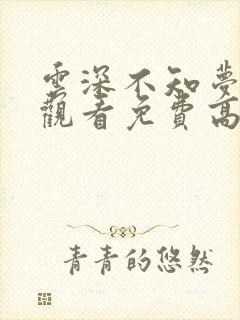 雲深不知夢
觀看免費高
青青的悠然